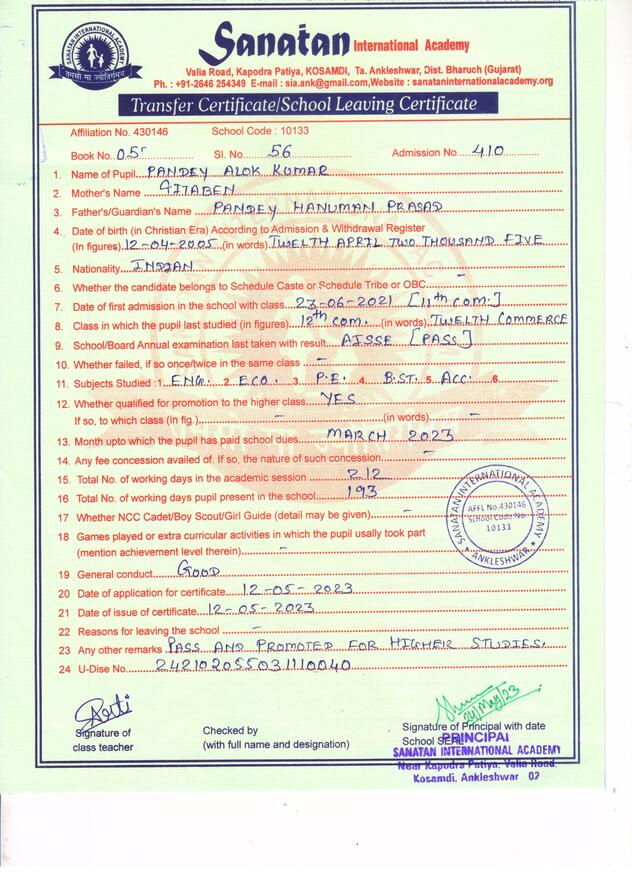 SANATAN INTERNATIONAL ACADEMY
तमसो मा ज्योतिर्गमय
Sanatan International Academy
Valia Road, Kapodra Patiya, KOSAMDI, Ta. Ankleshwar, Dist. Bharuch (Gujarat)
Ph. : +91-2646 254349 E-mail : sia.ank@gmail.com,Website : sanataninternationalacademy.org
Transfer Certificate/School Leaving Certificate
Affiliation No. 430146 School Code : 10133
Book No. 05 Sl. No. 56 Admission No. 410
1. Name of Pupil PANDEY ALOK KUMAR
2. Mother's Name GITABEN
3. Father's/Guardian's Name PANDEY HANUMAN PRASAD
4. Date of birth (in Christian Era) According to Admission & Withdrawal Register
(In figures) 12-04-2005 (in words) TWELTH APRIL TWO THOUSAND FIVE
5. Nationality INDIAN
6. Whether the candidate belongs to Schedule Caste or Schedule Tribe or OBC -
7. Date of first admission in the school with class 23-06-2021 [11th COM.]
8. Class in which the pupil last studied (in figures) 12th COM. (in words) TWELTH COMMERCE
9. School/Board Annual examination last taken with result AISSE [PASS]
10. Whether failed, if so once/twice in the same class -
11. Subjects Studied :1 ENG. 2 ECO. 3 P.E. 4 B.ST. 5 ACC. 6
12. Whether qualified for promotion to the higher class YES
If so, to which class (in fig.) - (in words) -
13. Month upto which the pupil has paid school dues MARCH 2023
14. Any fee concession availed of. If so, the nature of such concession -
15. Total No. of working days in the academic session 212
16 Total No. of working days pupil present in the school 193
17 Whether NCC Cadet/Boy Scout/Girl Guide (detail may be given) -
18 Games played or extra curricular activities in which the pupil usally took part
(mention achievement level therein) -
19 General conduct GOOD
20 Date of application for certificate 12-05-2023
21 Date of issue of certificate 12-05-2023
22 Reasons for leaving the school -
23 Any other remarks PASS AND PROMOTED FOR HIGHER STUDIES.
24 U-Dise No. 242102055031110040
SANATAN INTERNATIONAL ACADEMY
AFFL No.430146
School Code No.
10133
★ ANKLESHWAR ★
24/May/23
Signature of
class teacher
Checked by
(with full name and designation)
Signature of Principal with date
School SEAL
PRINCIPAL
SANATAN INTERNATIONAL ACADEMY
Near Kapodra Patiya, Valia Road,
Kosamdi, Ankleshwar 02